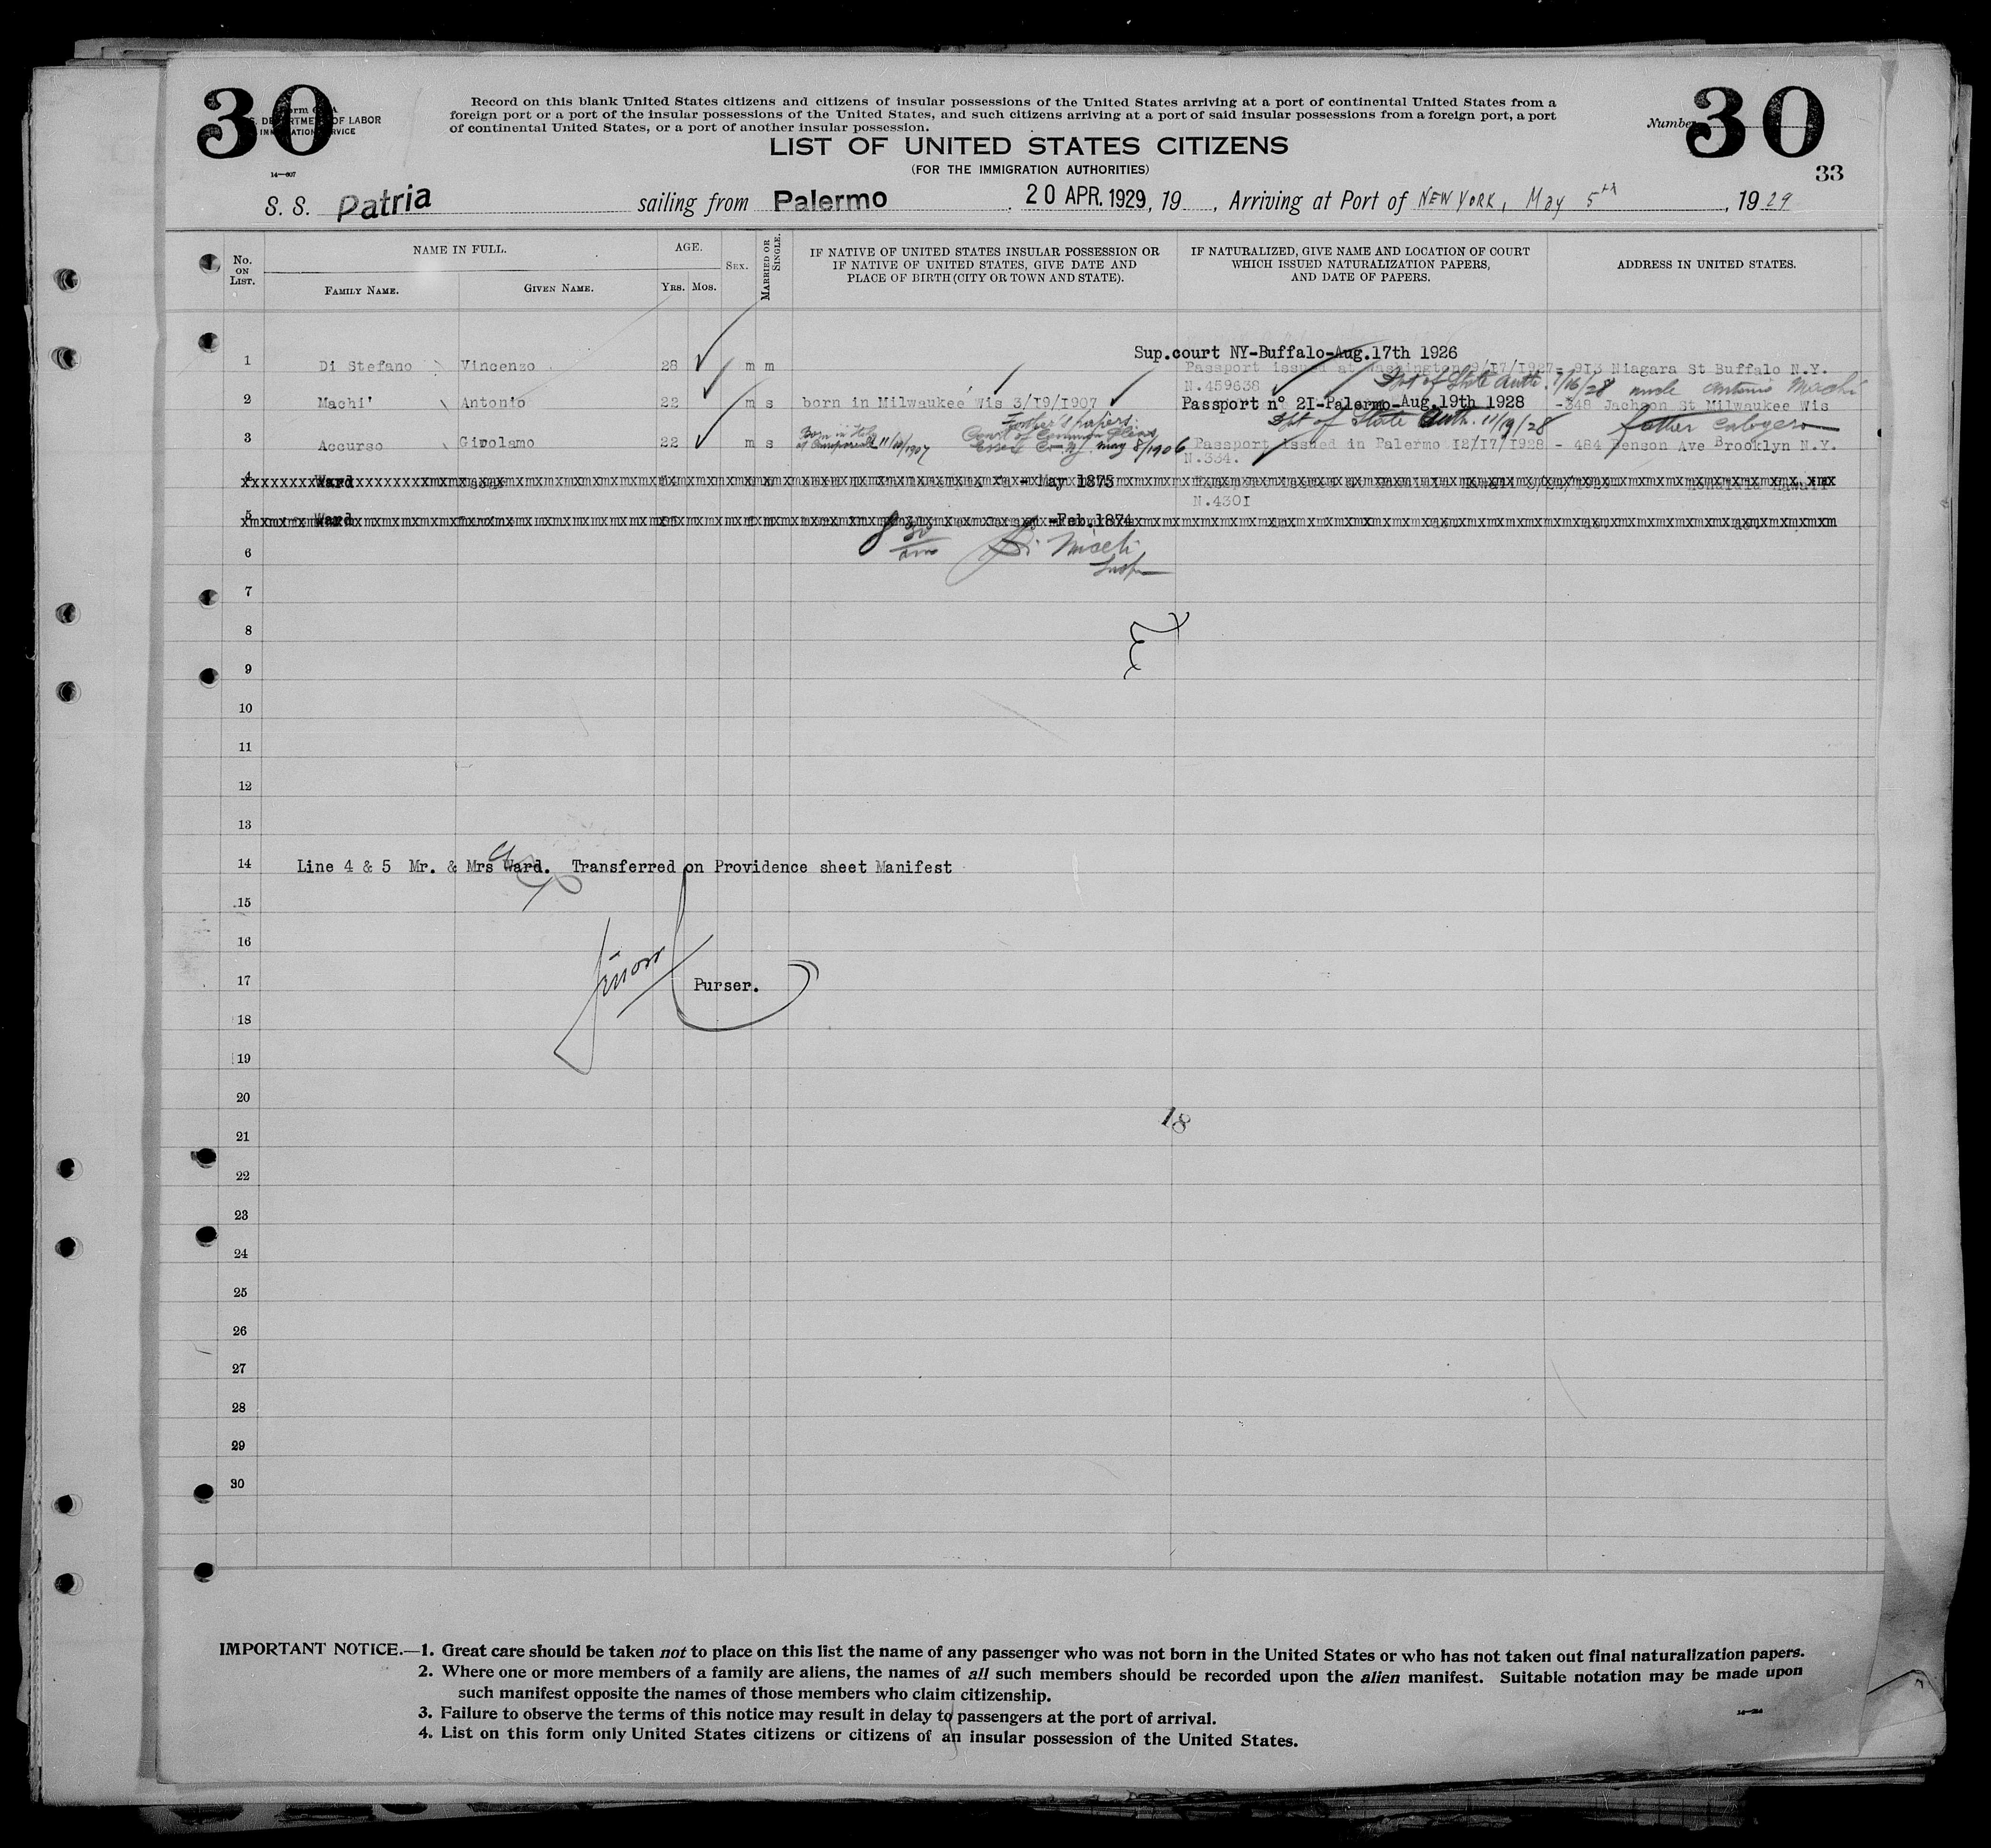 30
Form 630 A
U. S. DEPARTMENT OF LABOR
IMMIGRATION SERVICE
14—607
Record on this blank United States citizens and citizens of insular possessions of the United States arriving at a port of continental United States from a
foreign port or a port of the insular possessions of the United States, and such citizens arriving at a port of said insular possessions from a foreign port, a port
of continental United States, or a port of another insular possession.
LIST OF UNITED STATES CITIZENS
(FOR THE IMMIGRATION AUTHORITIES)
Number 30
33
S. S. Patria sailing from Palermo 20 APR. 1929, 19 , Arriving at Port of NEW YORK, May 5th , 1929
No. ON LIST.
NAME IN FULL.
FAMILY NAME. GIVEN NAME.
AGE.
YRS. MOS.
SEX.
MARRIED OR SINGLE.
IF NATIVE OF UNITED STATES INSULAR POSSESSION OR
IF NATIVE OF UNITED STATES, GIVE DATE AND
PLACE OF BIRTH (CITY OR TOWN AND STATE).
IF NATURALIZED, GIVE NAME AND LOCATION OF COURT
WHICH ISSUED NATURALIZATION PAPERS,
AND DATE OF PAPERS.
ADDRESS IN UNITED STATES.
Sup.court NY-Buffalo-Aug.17th 1926
1 Di Stefano Vincenzo 28 m m Passport issued at Washington 9/17/1927- 913 Niagara St Buffalo N.Y.
N.459638 Dpt of State Auth. 7/16/28 uncle Antonio Machi
2 Machi' Antonio 22 m s born in Milwaukee Wis 3/19/1907 Passport n° 21-Palermo-Aug.19th 1928 -348 Jachson St Milwaukee Wis
Father's papers Dpt of State Auth. 11/19/28 father Calogero
Born in Italy Court of Common Pleas
3 Accurso Girolamo 22 m s at Camporeale 11/10/1907 Essex Co. N.J. May 8/1906 Passport issued in Palermo 12/17/1928 - 484 Benson Ave Brooklyn N.Y.
N.334.
4 Ward -May 1875
N.4301
5 Ward -Feb.1874
8 30
am
Di Miceli
Insp
6
7
8
9
10
11
12
13
14 Line 4 & 5 Mr. & Mrs Ward. Transferred on Providence sheet Manifest
15
16
17 Purser.
18
19
20
18
21
22
23
24
25
26
27
28
29
30
IMPORTANT NOTICE.—1. Great care should be taken not to place on this list the name of any passenger who was not born in the United States or who has not taken out final naturalization papers.
2. Where one or more members of a family are aliens, the names of all such members should be recorded upon the alien manifest. Suitable notation may be made upon
such manifest opposite the names of those members who claim citizenship.
3. Failure to observe the terms of this notice may result in delay to passengers at the port of arrival.
4. List on this form only United States citizens or citizens of an insular possession of the United States.